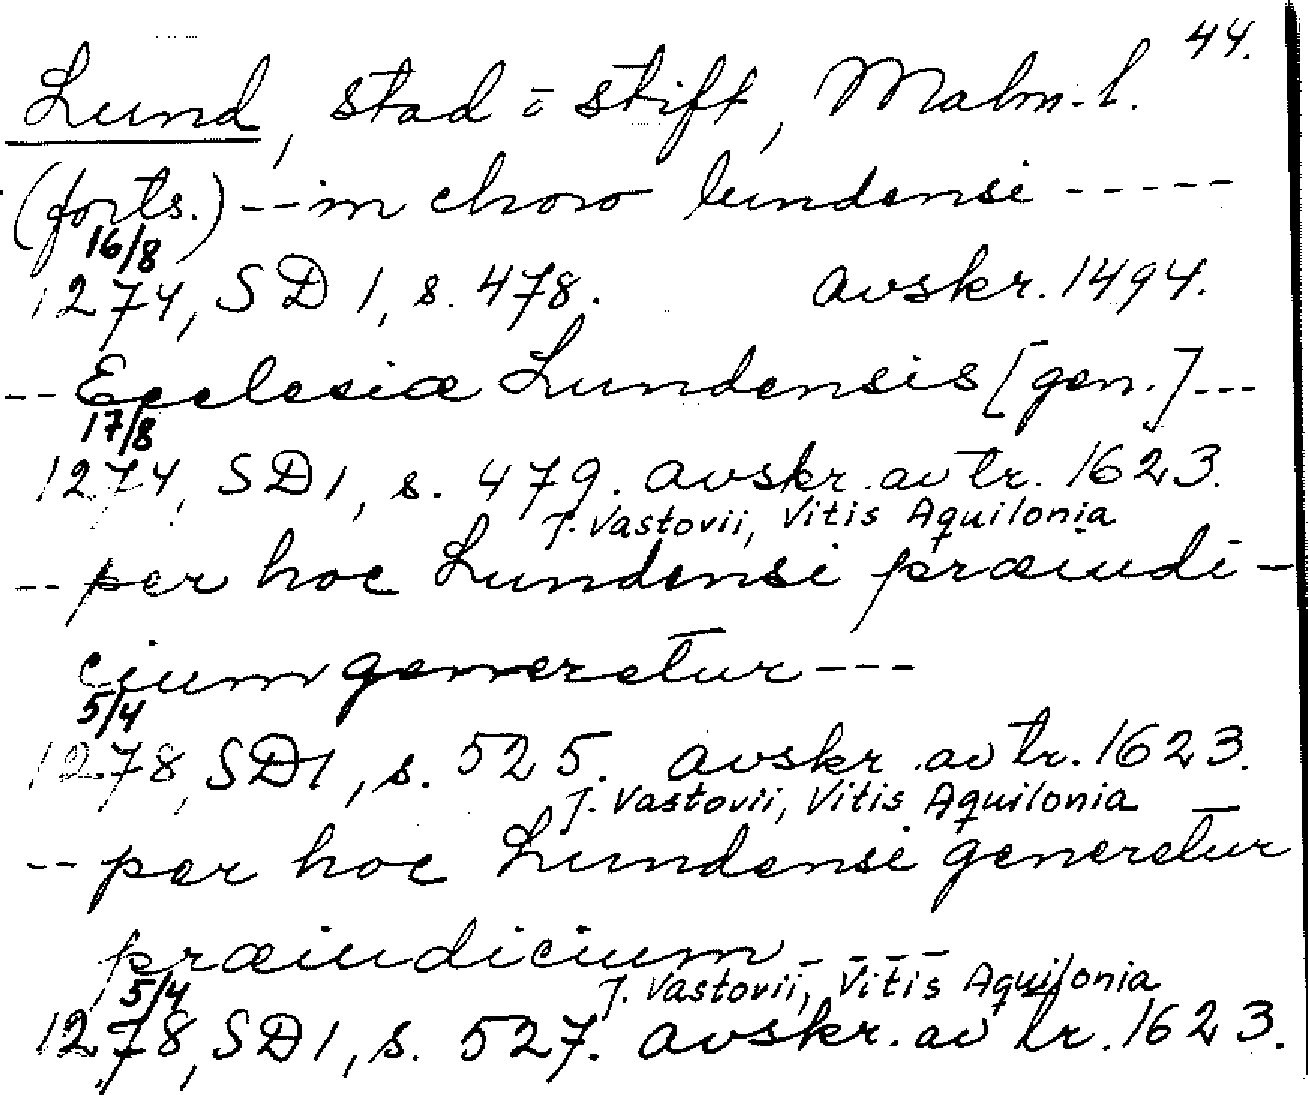 44.
Lund, stad o stift, Malm. l.
(forts.) -- in choro lundensi -----
16/8
1274, SD 1, s. 478. avskr. 1494.
-- Ecclesiæ Lundensis [gen.] ---
17/8
1274, SD 1, s. 479. avskr. av tr. 1623.
J. Vastovii, Vitis Aquilonia
-- per hoc Lundensi præiudi-
cium generetur ---
5/4
1278, SD 1, s. 525. avskr. av tr. 1623.
J. Vastovii, Vitis Aquilonia
-- per hoc Lundensi generetur
præiudicium -----
5/4 J. Vastovii, Vitis Aquilonia
1278, SD 1, s. 527. avskr. av tr. 1623.